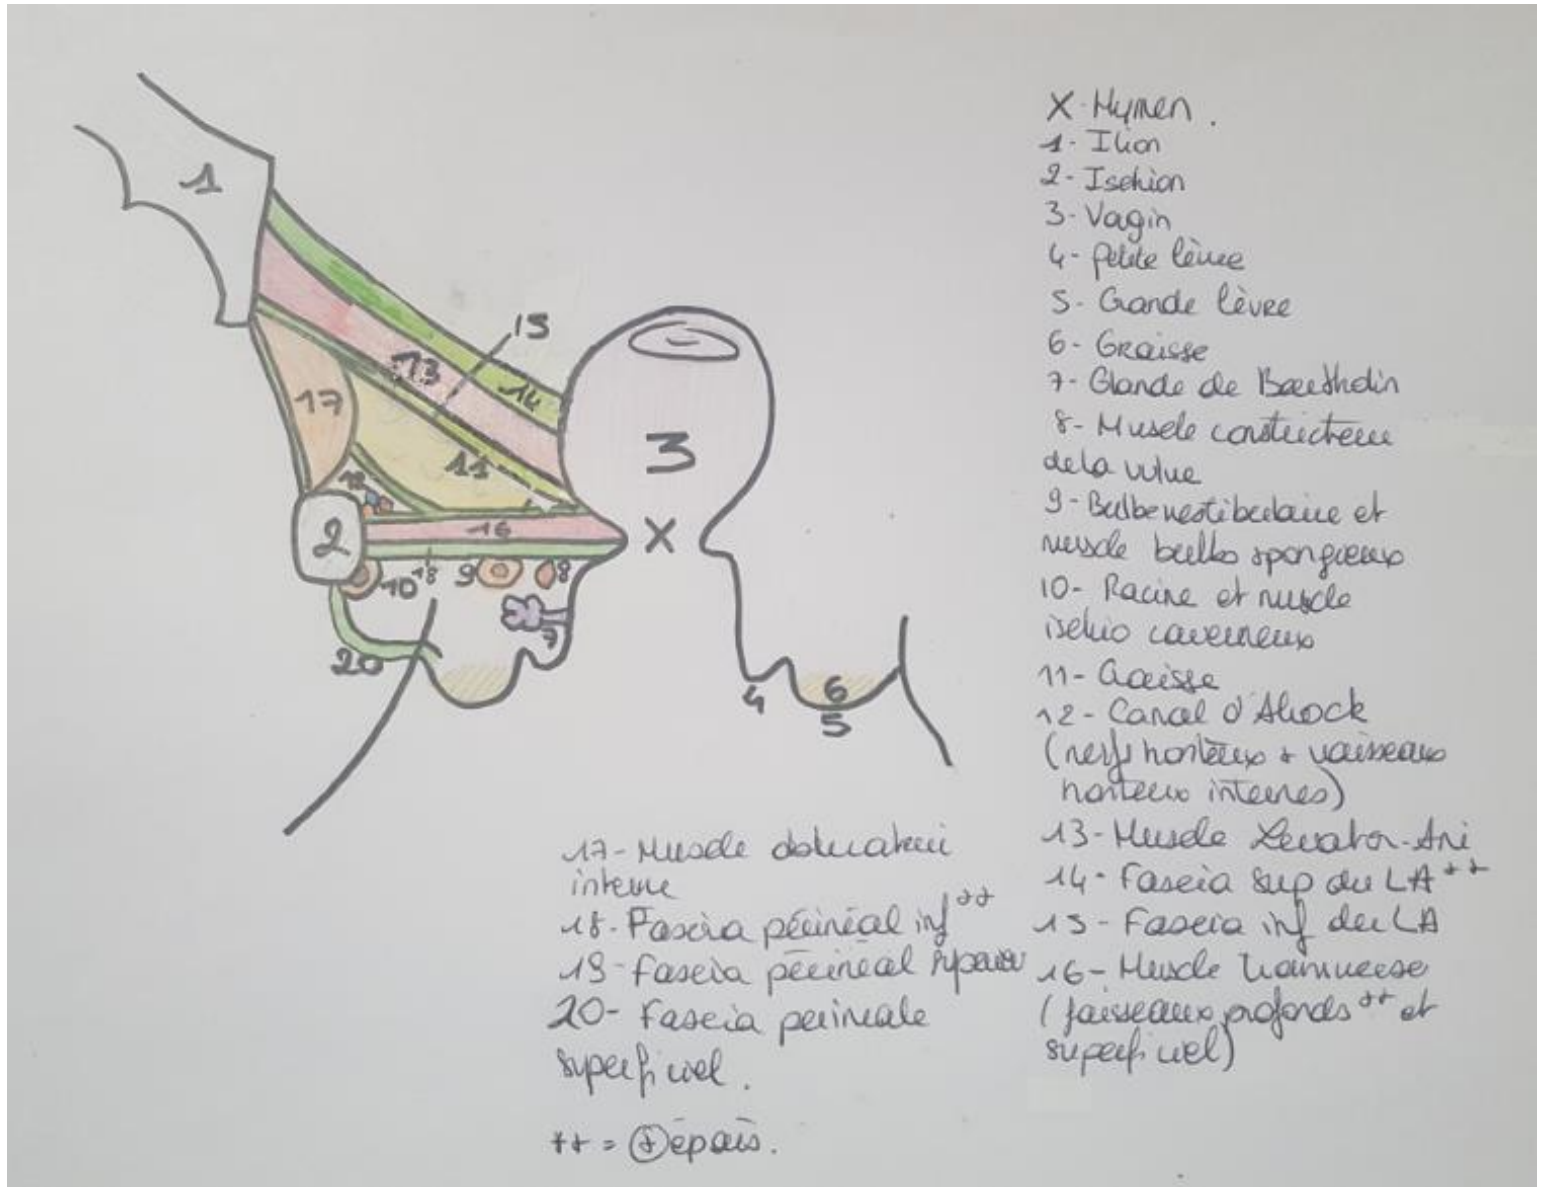 1
13
15
14
17
11
3
12
2
16
X
10
18
9
8
7
20
4
6
5
X - Hymen.
1- Ilion
2- Ischion
3- Vagin
4- petite lèvre
5- Grande lèvre
6- Graisse
7- Glande de Bartholin
8- Muscle constricteur
de la vulve
9- Bulbe vestibulaire et
muscle bulbo spongieux
10- Racine et muscle
ischio caverneux
11- Graisse
12- Canal d'Alcock
(nerfs honteux + vaisseaux
honteux internes)
13- Muscle Levator-Ani
14- Fascia sup du LA ++
15- Fascia inf du LA
16- Muscle transverse
(faisseaux profonds ++ et
superficiel)
17- Muscle obturateur
interne
18- Fascia périnéal inf ++
19- Fascia périnéal supérieur
20- Fascia perineale
superficiel.
++ = + épais.